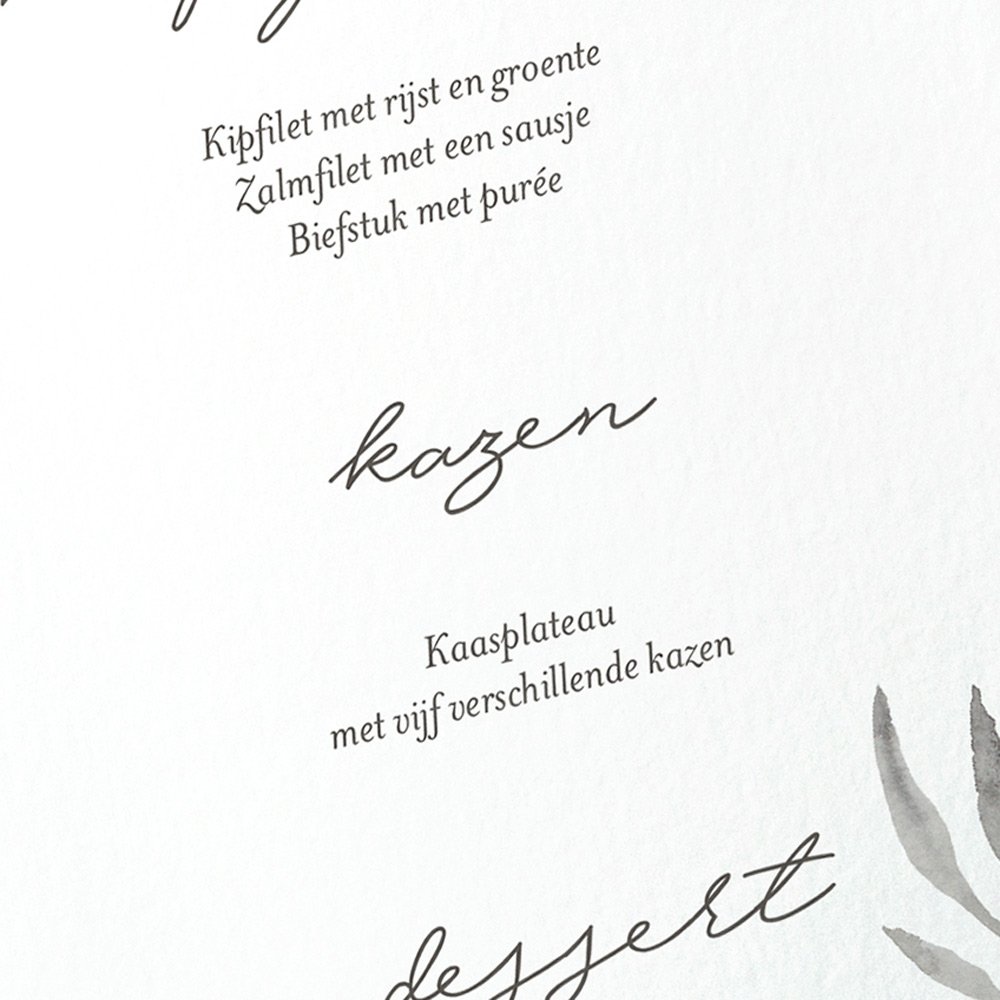 Kipfilet met rijst en groente
Zalmfilet met een sausje
Biefstuk met purée
kazen
Kaasplateau
met vijf verschillende kazen
dessert